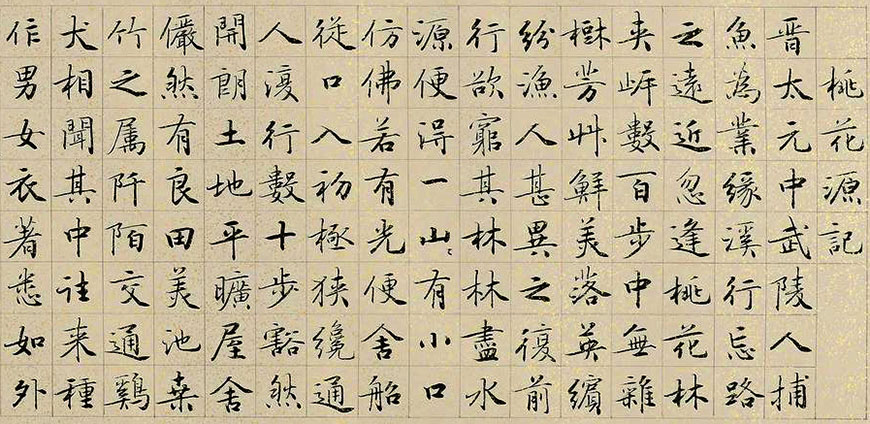 桃花源記
晉太元中武陵人捕
魚為業緣溪行忘路
之遠近忽逢桃花林
夾岸數百步中無雜
樹芳艸鮮美落英繽
紛漁人甚異之復前
行欲窮其林林盡水
源便得一山〻有小口
仿佛若有光便舍船
從口入初極狹纔通
人復行數十步豁然
開朗土地平曠屋舍
儼然有良田美池桑
竹之属阡陌交通鷄
犬相聞其中往来種
作男女衣著悉如外